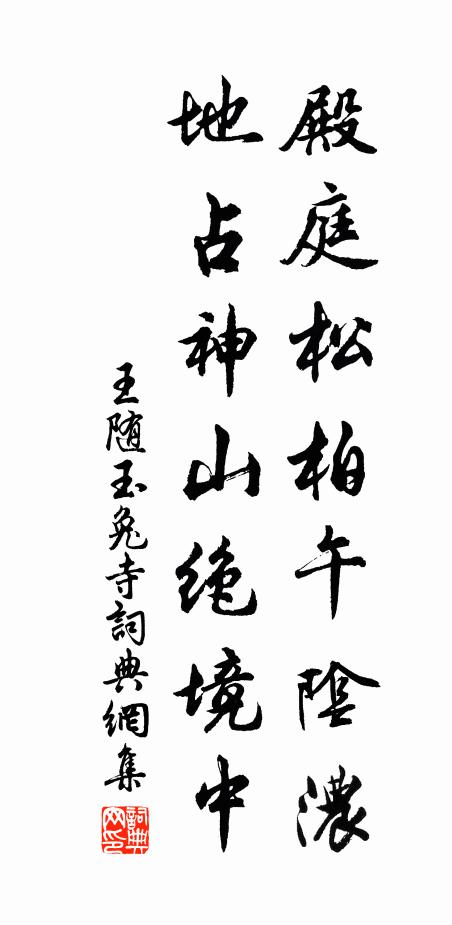 殿庭松柏午陰濃
地占神山絶境中
王随玉兔寺詞典網集
詞典
网印